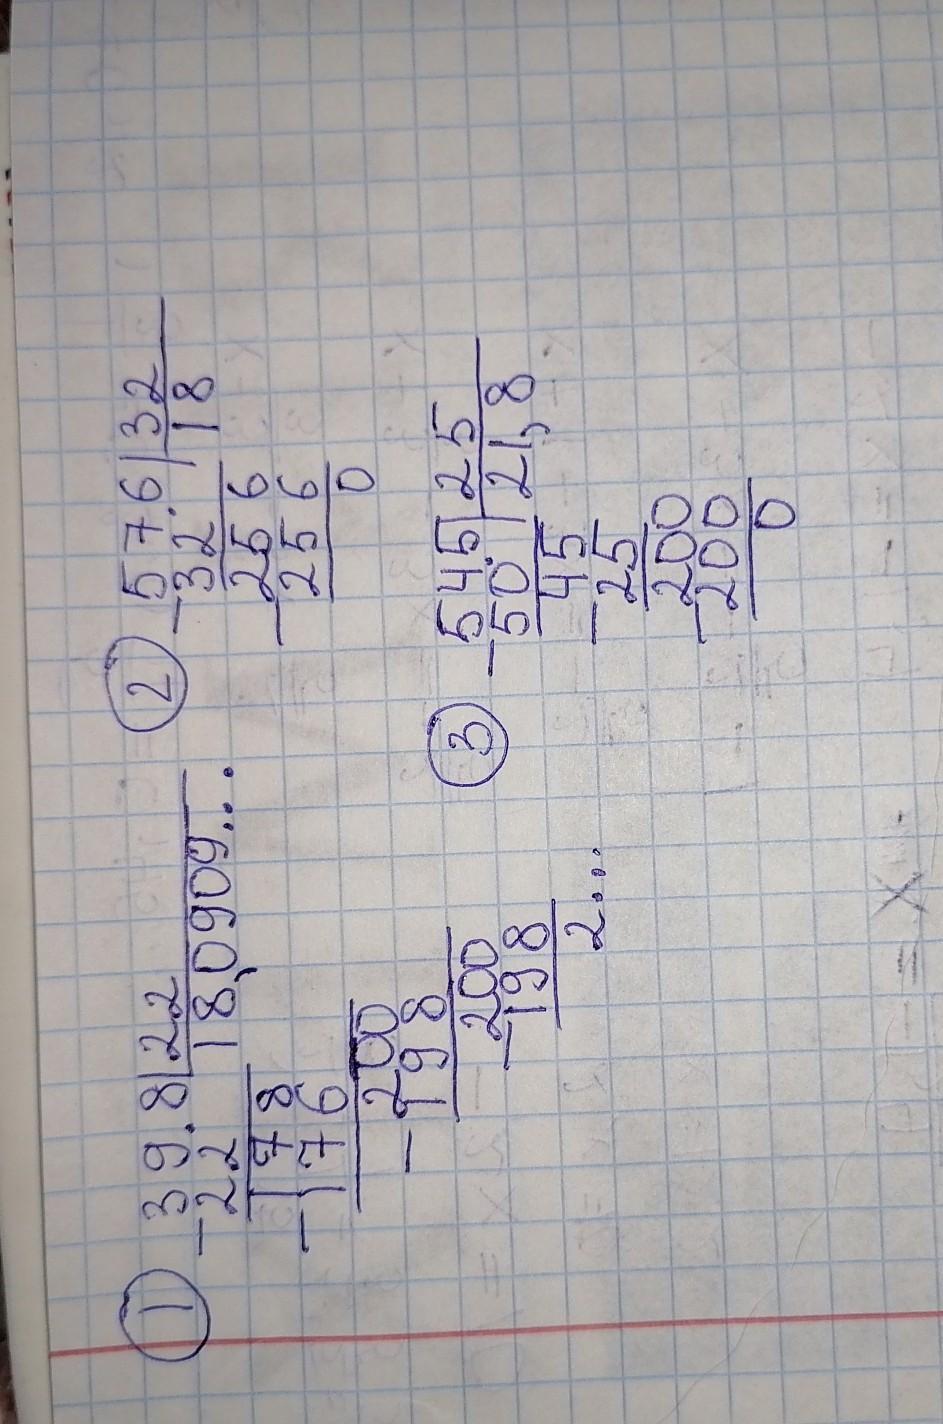 ① 39.8|22
-22 18,0909...
178
-176
200
-198
200
-198
2...
② 57.6|32
-32 18
256
-256
0
③ 54.5|25
-50 21,8
45
-25
200
-200
0